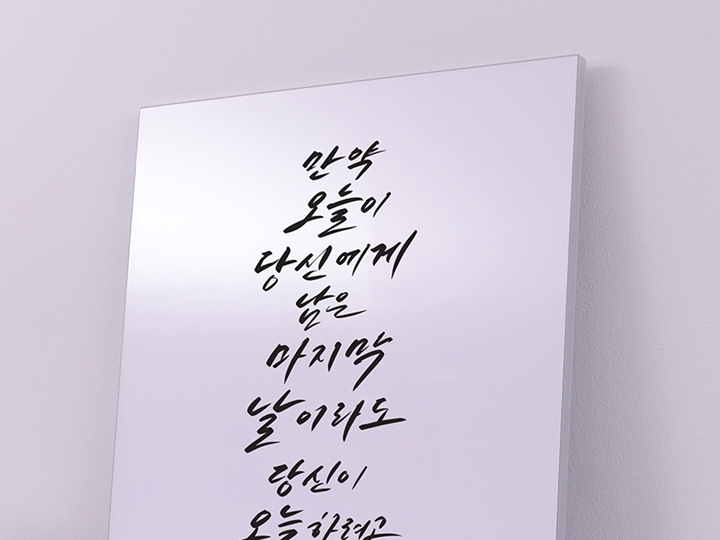 만약
오늘이
당신에게
남은
마지막
날이라도
당신이
오늘하려고